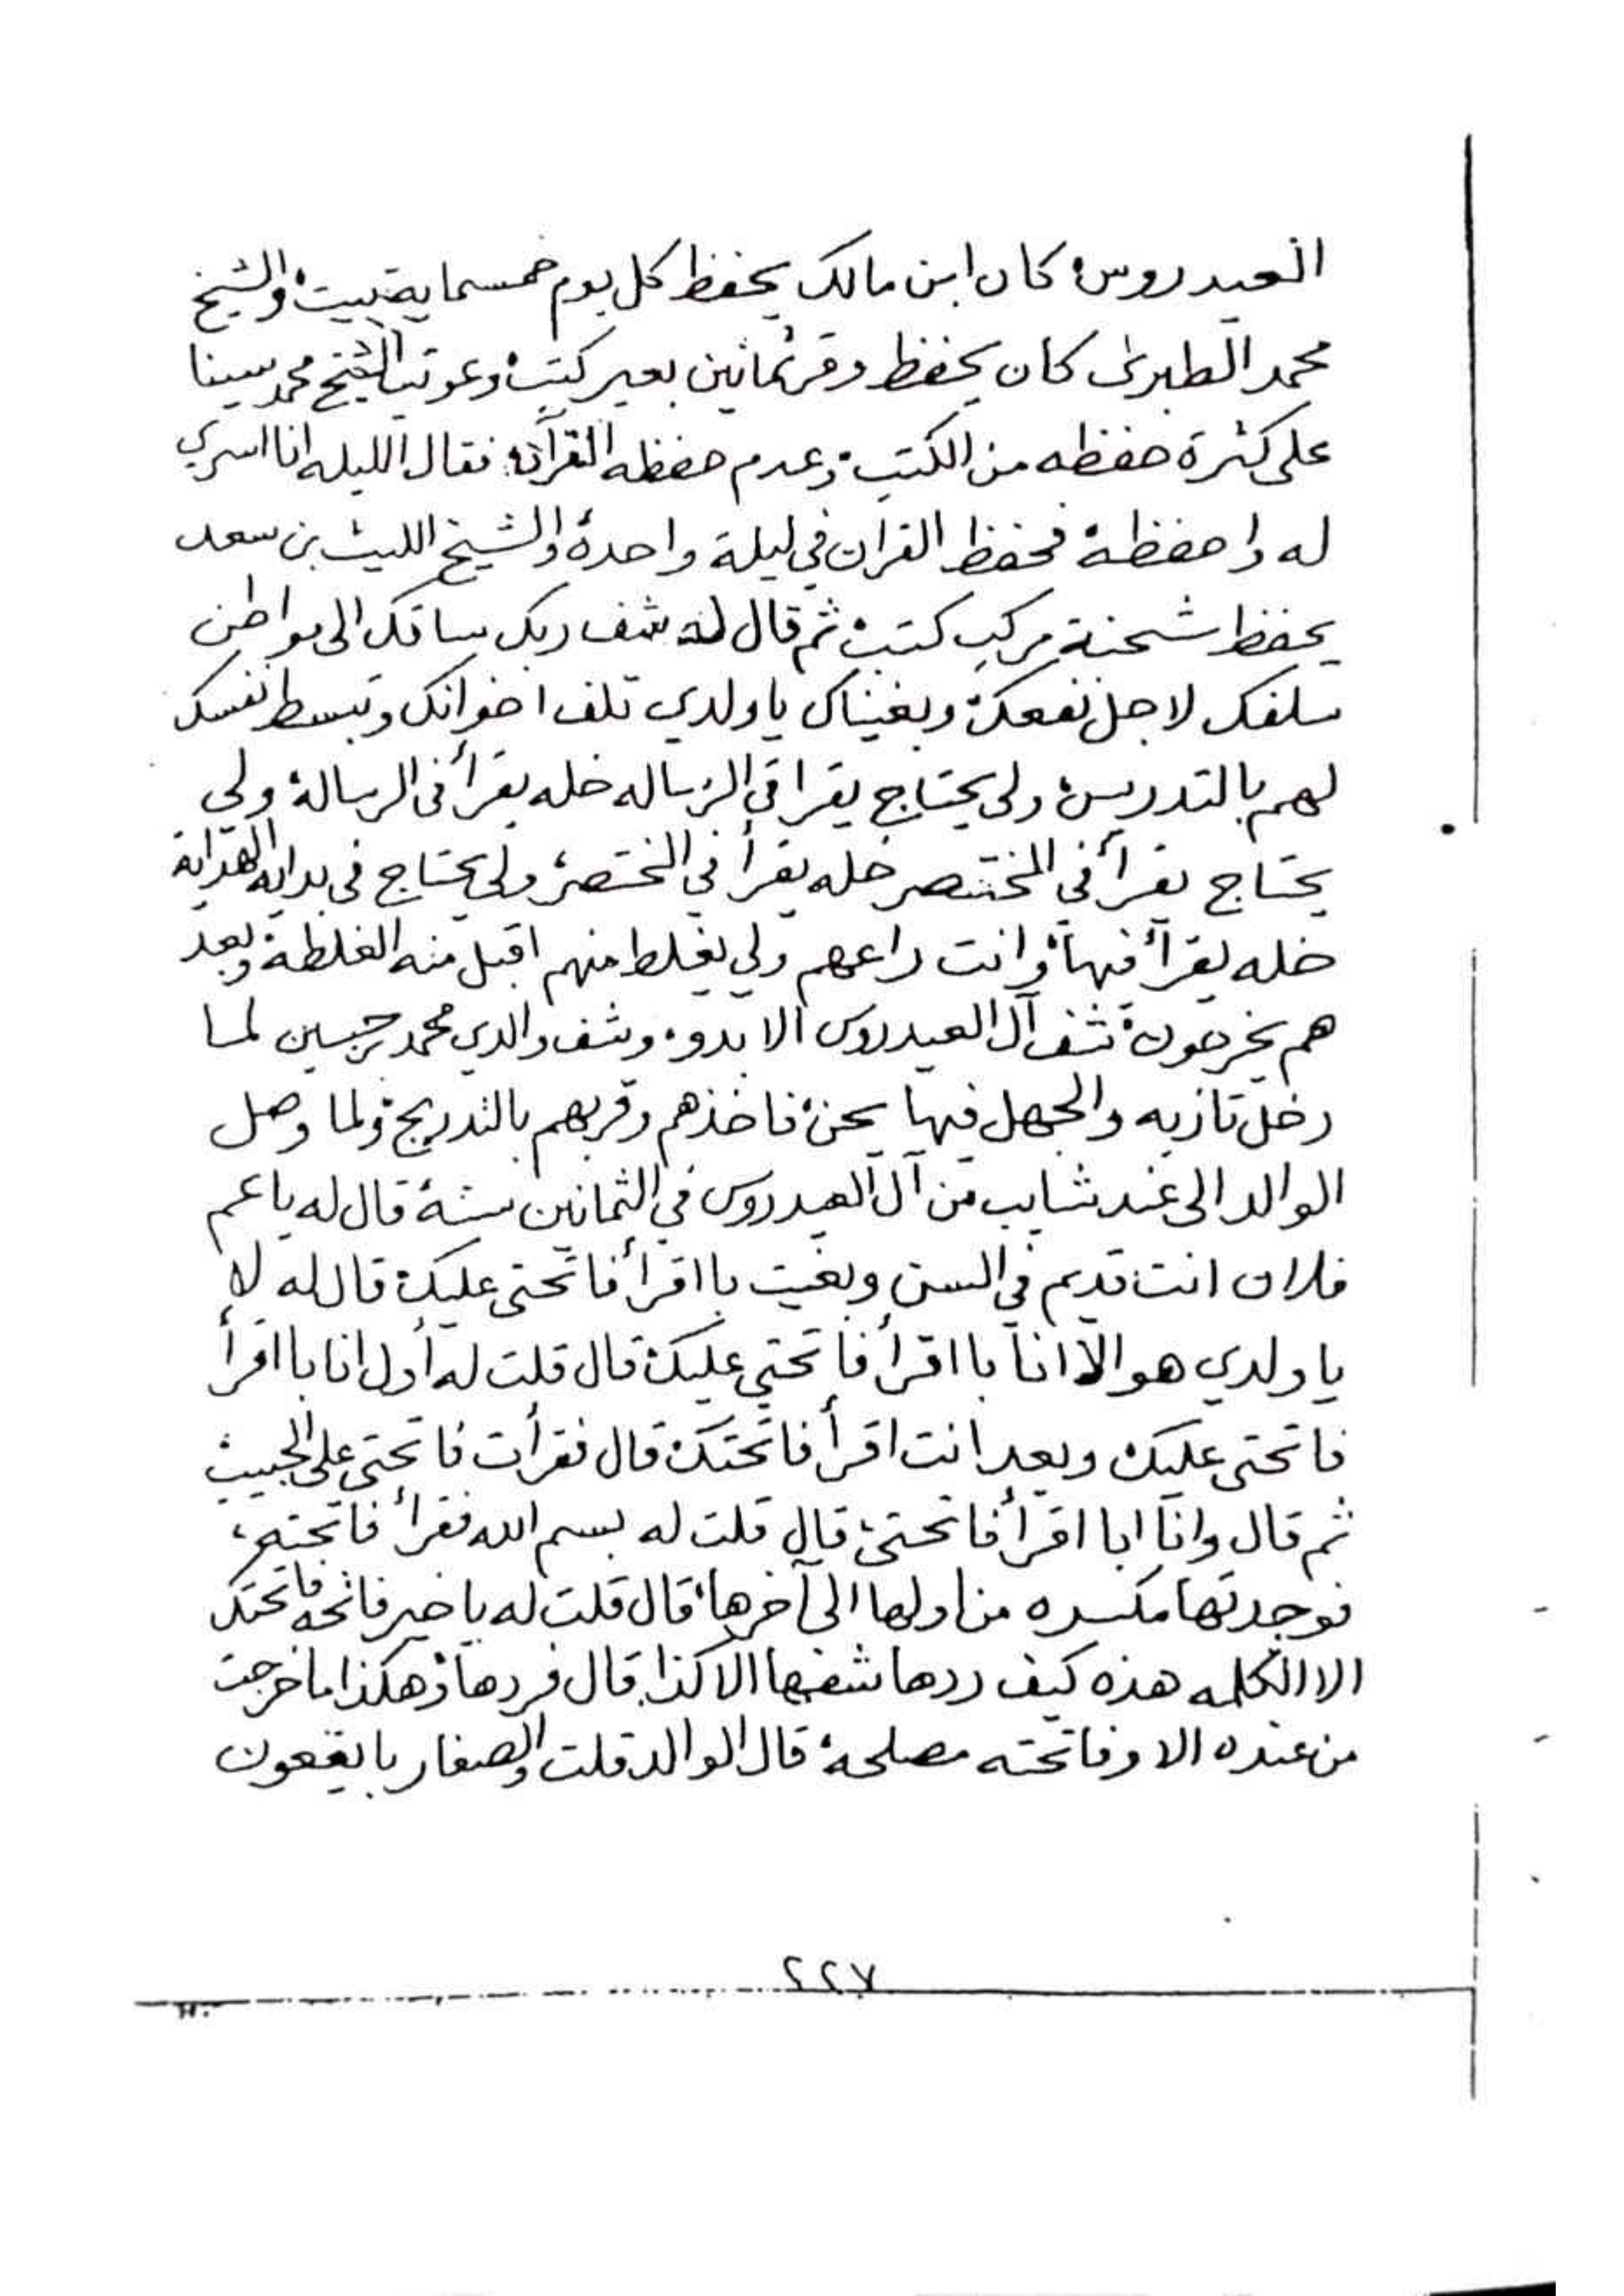 العيدروس، كان ابن مالك يحفظ كل يوم خمسماية بيت، والشيخ
محمد الطبرى كان يحفظ وقر ثمانين بعير كتب، وعوتب الشيخ محمد سينا
على كثرة حفظه من الكتب، وعدم حفظه القرآن، فقال الليله انا اسري
له واحفظه، فحفظ القرآن في ليلة واحدة، والشيخ الليث بن سعد
يحفظ شحنة مركب كتب، ثم قال له شف ربك ساقك الى مواطن
سلفك لاجل نفعك، وبغيناك يا ولدي تلف اخوانك وتبسط نفسك
لهم بالتدريس، ولي يحتاج يقرا في الرساله خله يقرأ في الرسالة، ولي
يحتاج يقرأ في المختصر خله يقرأ في المختصر، ولي يحتاج في بداية الهداية
خله يقرأ فيها، وانت راعهم ولي يغلط منهم اقبل منه الغلطة، وبعد
هم يخرجون، شف آل العيدروس الا بدو، وشف والدي محمد بن حسين لما
دخل تاربه والجهل فيها يحن، فاخذهم وقربهم بالتدريج، ولما وصل
الوالد الى عند شايب من آل العيدروس في الثمانين سنة، قال له يا عم
فلان انت قديم في السن وبغيت با اقرأ فاتحتي عليك، قال له لا
يا ولدي هو الا انا با اقرأ فاتحتي عليك، قال قلت له أول انا با اقرأ
فاتحتى عليك وبعد انت اقرأ فاتحتك، قال فقرأت فاتحتى على الحبيب
ثم قال وانا ابا اقرأ فاتحتى، قال قلت له بسم الله فقرأ فاتحته،
فوجدتها مكسره من اولها الى آخرها، قال قلت له يا خير فاتحه فاتحتك
الا الكلمه هذه كيف ردها شفها الا كذا، قال فردها، وهكذا ما خرجت
من عنده الا وفاتحته مصلحة، قال الوالد قلت والصغار با يقعون
٢٢٧